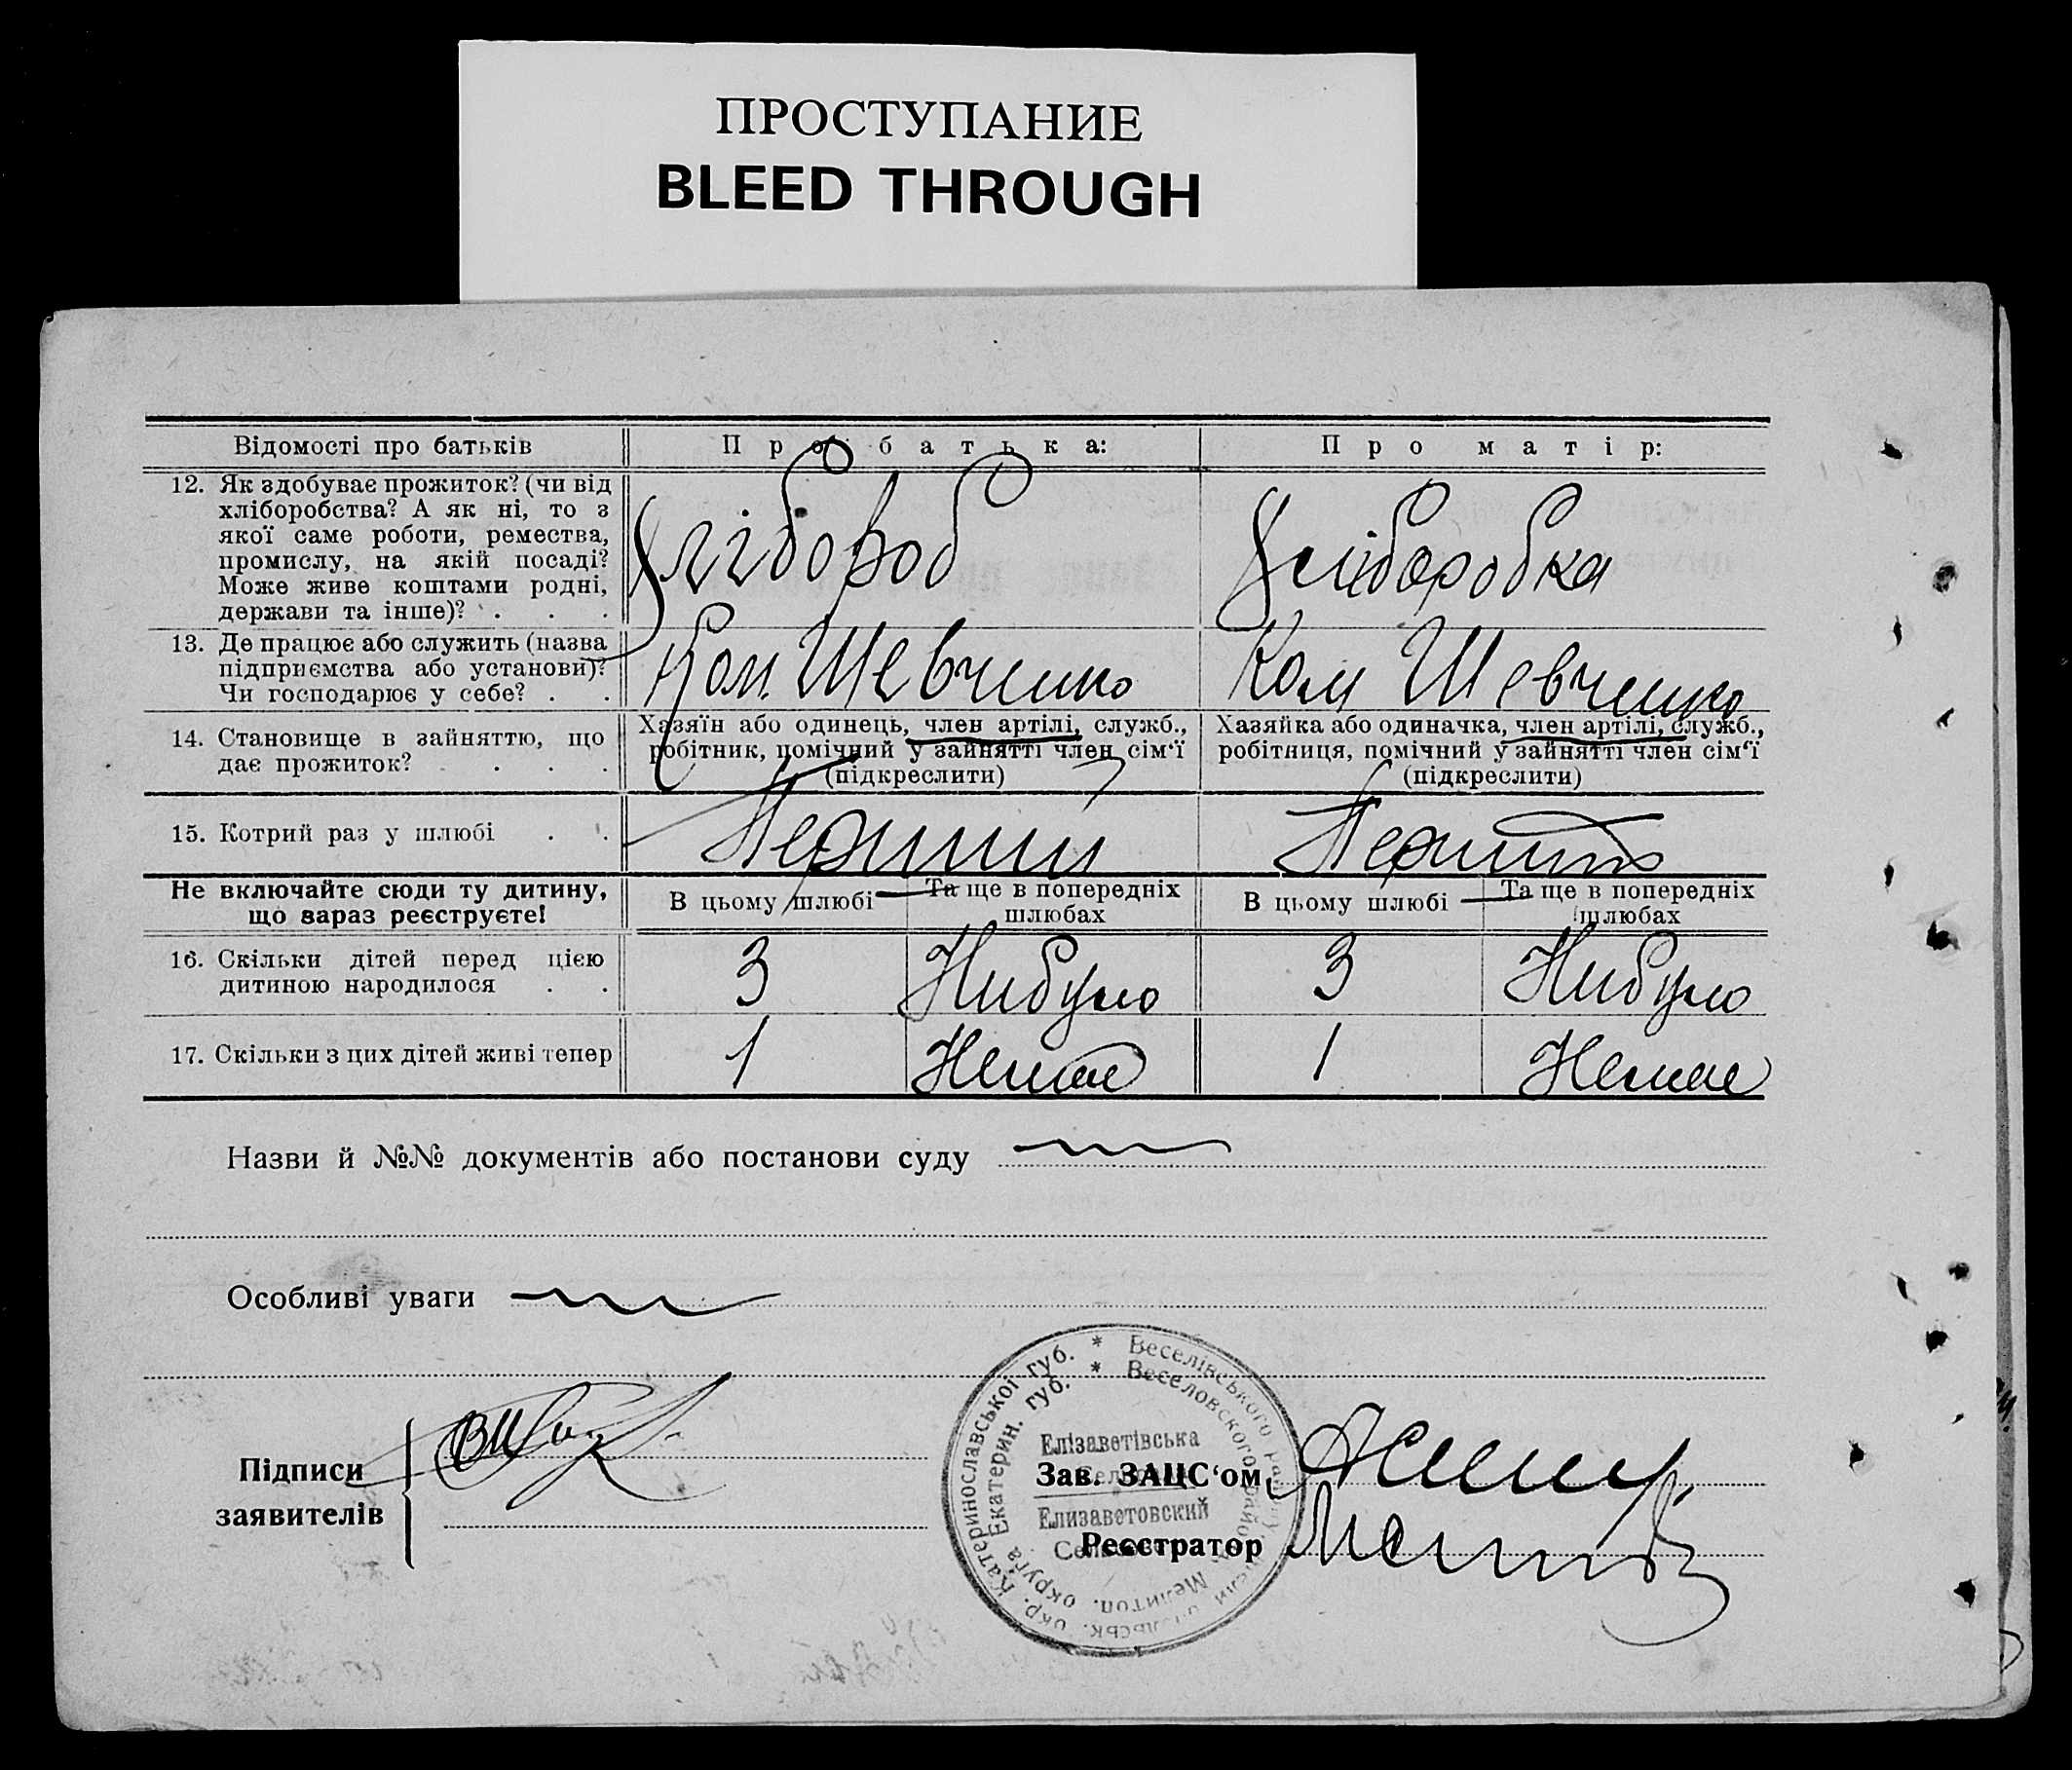 ПРОСТУПАНИЕ
BLEED THROUGH
Відомості про батьків
Про батька:
Про матір:
12. Як здобуває прожиток? (чи від
хліборобства? А як ні, то з
якої саме роботи, ремества,
промислу, на якій посаді?
Може живе коштами родні,
держави та інше)? . . .
Хлібороб
Хліборобка
13. Де працює або служить (назва
підприємства або установи)?
Чи господарює у себе? . .
Ком. Шевченко
Ком Шевченко
14. Становище в зайняттю, що
дає прожиток? . . . .
Хазяїн або одинець, член артілі, служб.,
робітник, помічний у зайнятті член сім'ї
(підкреслити)
Хазяйка або одиначка, член артілі, служб.,
робітниця, помічний у зайнятті член сім'ї
(підкреслити)
15. Котрий раз у шлюбі . .
Перший
Не включайте сюди ту дитину,
що зараз реєструєте!
В цьому шлюбі
Та ще в попередніх
шлюбах
В цьому шлюбі
Та ще в попередніх
шлюбах
16. Скільки дітей перед цією
дитиною народилося . .
3
Нибуло
3
Нибуло
17. Скільки з цих дітей живі тепер
1
Немає
1
Немае
Назви й №№ документів або постанови суду
Особливі уваги
Підписи
заявителів
Зав. ЗАЦС'ом
Реєстратор
Катеринославської губ. * Веселівського
округа Екатерин. губ. * Веселовского
Мелитоп.
Елізаветівська
Елизаветовский